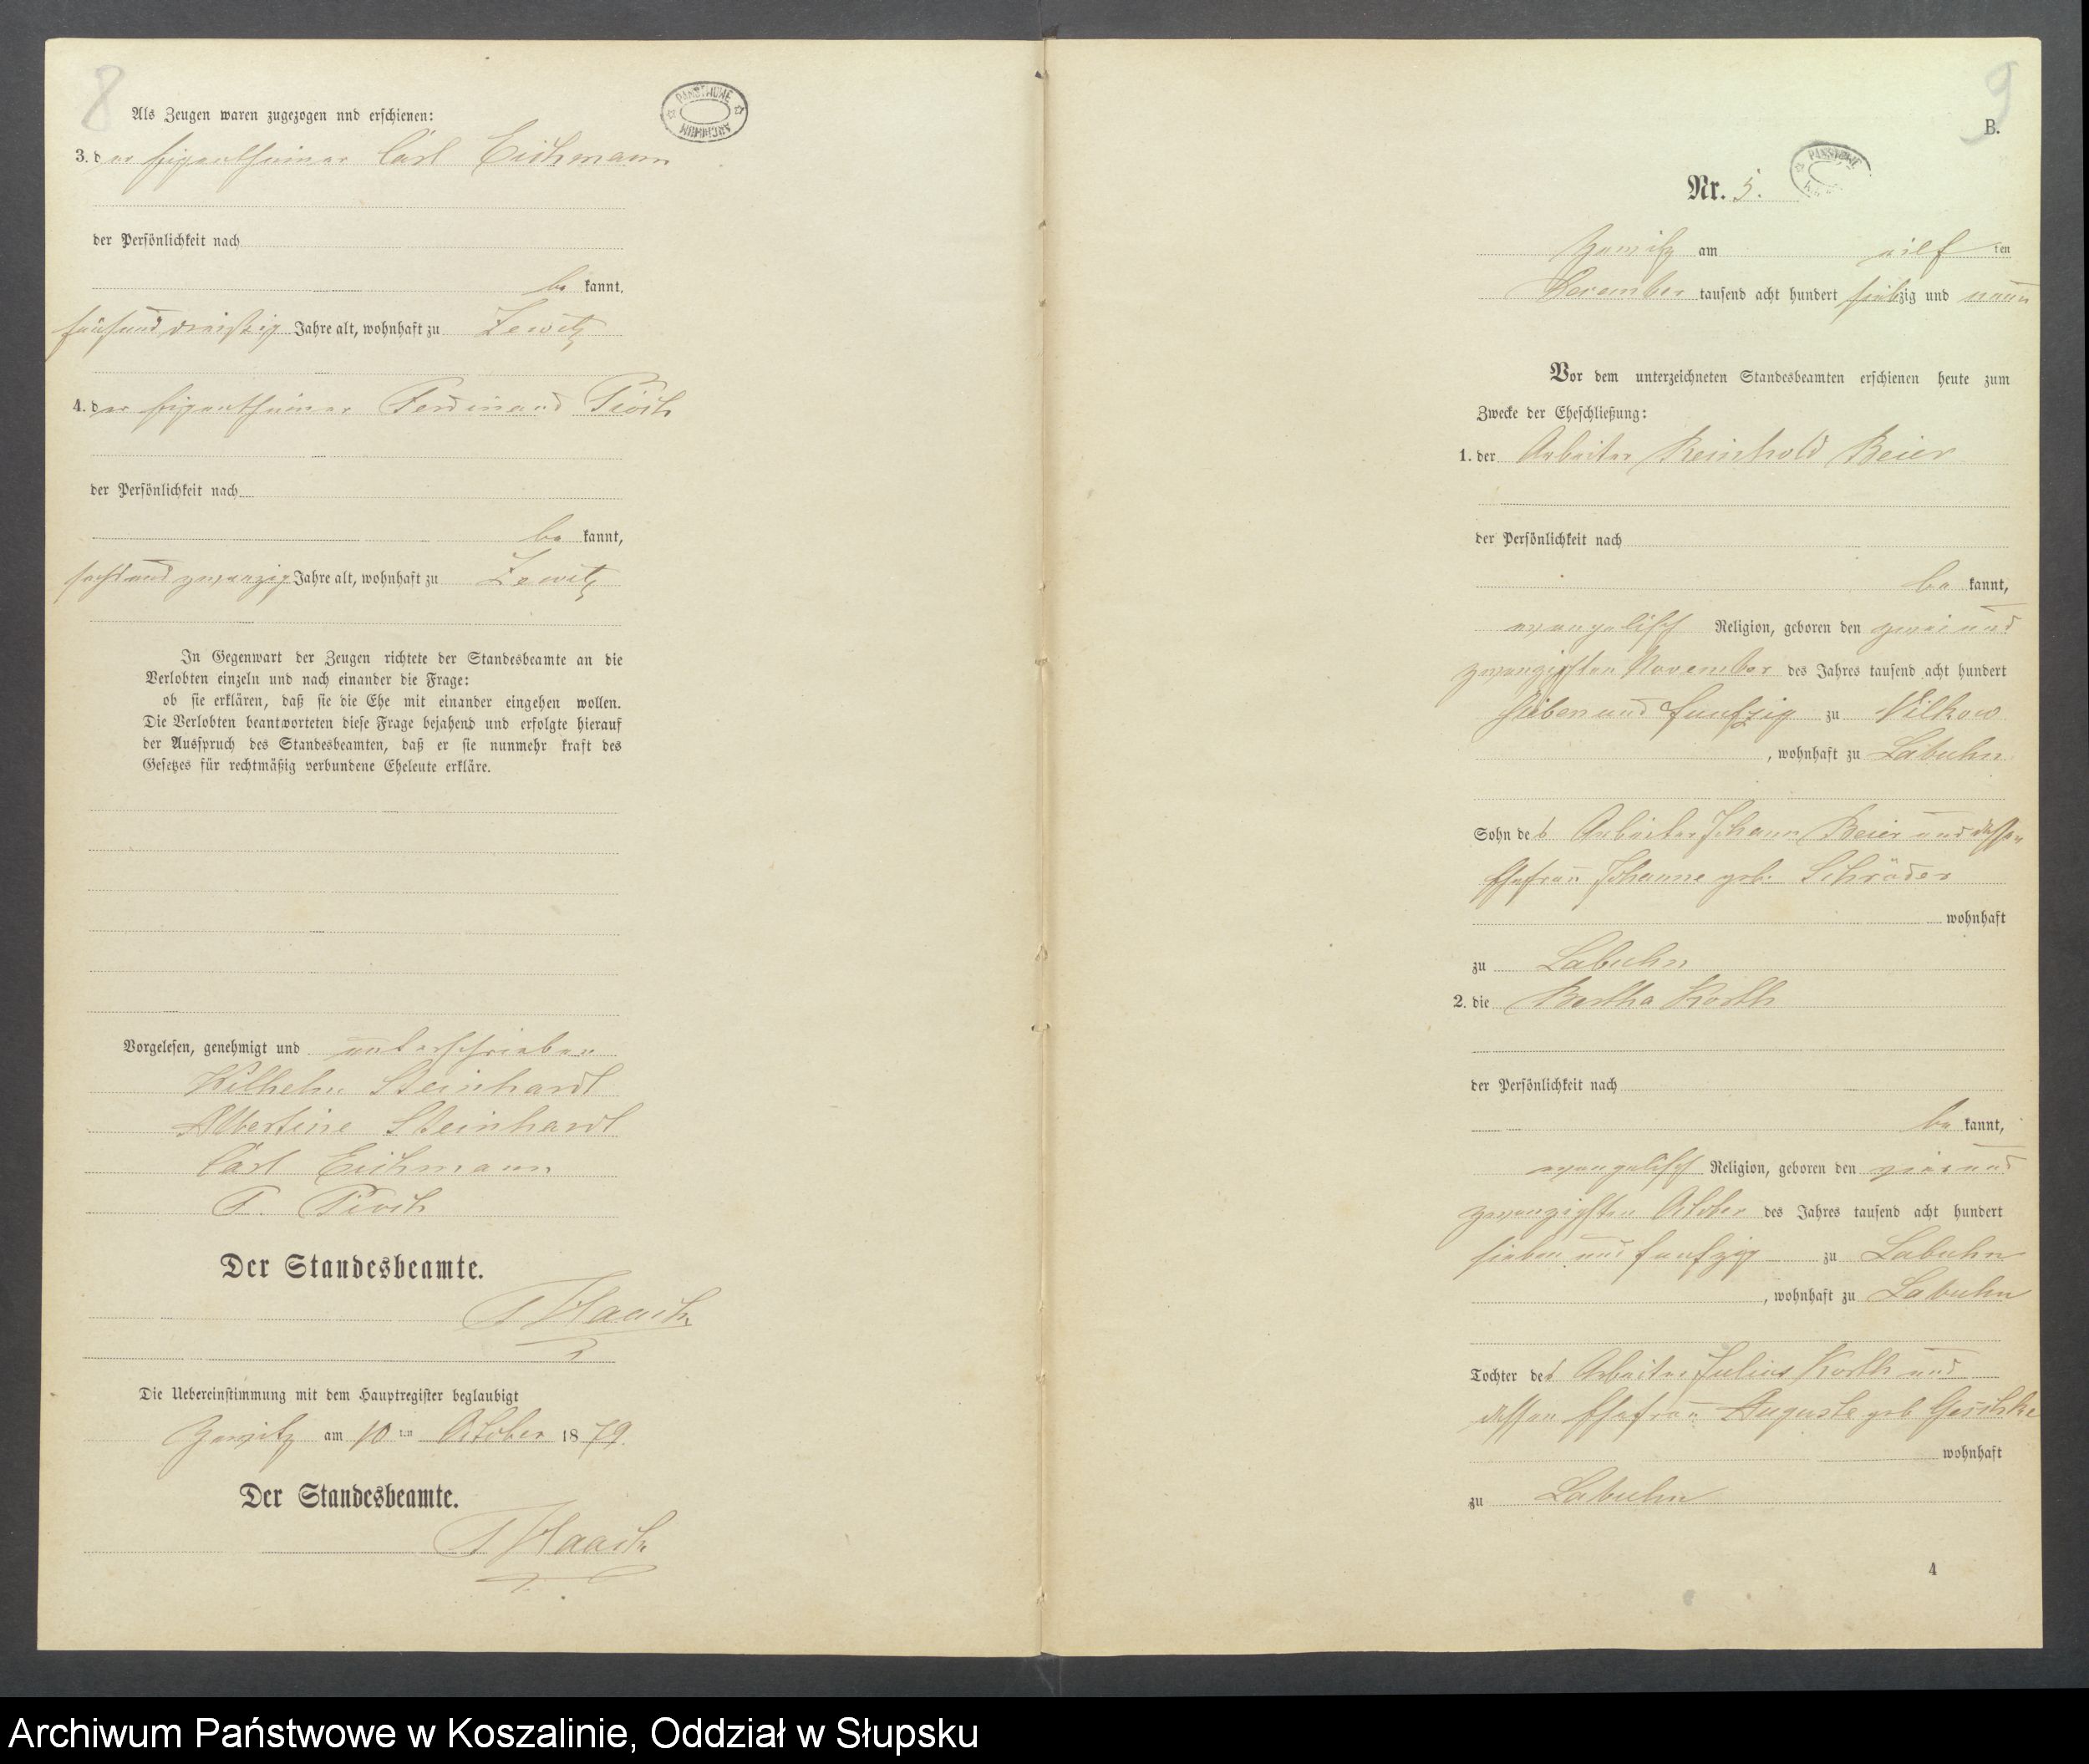 8
Als Zeugen waren zugezogen und erschienen:
3. der Eigenthümer Carl Eichmann
der Persönlichkeit nach
be kannt,
fünfunddreißig Jahre alt, wohnhaft zu Zewitz
4. der Eigenthümer Ferdinand Pioch
der Persönlichkeit nach
be kannt,
sechsundzwanzig Jahre alt, wohnhaft zu Zewitz
In Gegenwart der Zeugen richtete der Standesbeamte an die
Verlobten einzeln und nach einander die Frage:
ob sie erklären, daß sie die Ehe mit einander eingehen wollen.
Die Verlobten beantworteten diese Frage bejahend und erfolgte hierauf
der Ausspruch des Standesbeamten, daß er sie nunmehr kraft des
Gesetzes für rechtmäßig verbundene Eheleute erkläre.
Vorgelesen, genehmigt und unterschrieben
Wilhelm Steinhardt
Albertine Steinhardt
Carl Eichmann
F. Pioch
Der Standesbeamte.
Haack
Die Uebereinstimmung mit dem Hauptregister beglaubigt
Zewitz am 10 ten October 1879.
Der Standesbeamte.
Haack
PAŃSTWOWE ARCHIWUM
9
B.
Nr. 5.
Zewitz am eilf ten
December tausend acht hundert siebzig und neun
Vor dem unterzeichneten Standesbeamten erschienen heute zum
Zwecke der Eheschließung:
1. der Arbeiter Reinhold Beier
der Persönlichkeit nach
be kannt,
evangelisch Religion, geboren den zwei und
zwanzigsten November des Jahres tausend acht hundert
sieben und funfzig zu Vilkow
, wohnhaft zu Labuhn
Sohn des Arbeiter Johann Beier und dessen
Ehefrau Johanne geb. Schröder
wohnhaft
zu Labuhn
2. die Bertha Korth
der Persönlichkeit nach
be kannt,
evangelisch Religion, geboren den vier und
zwanzigsten October des Jahres tausend acht hundert
sieben und funfzig zu Labuhn
, wohnhaft zu Labuhn
Tochter des Arbeiter Julius Korth und
dessen Ehefrau Auguste geb Geschke
wohnhaft
zu Labuhn
4
Archiwum Państwowe w Koszalinie, Oddział w Słupsku